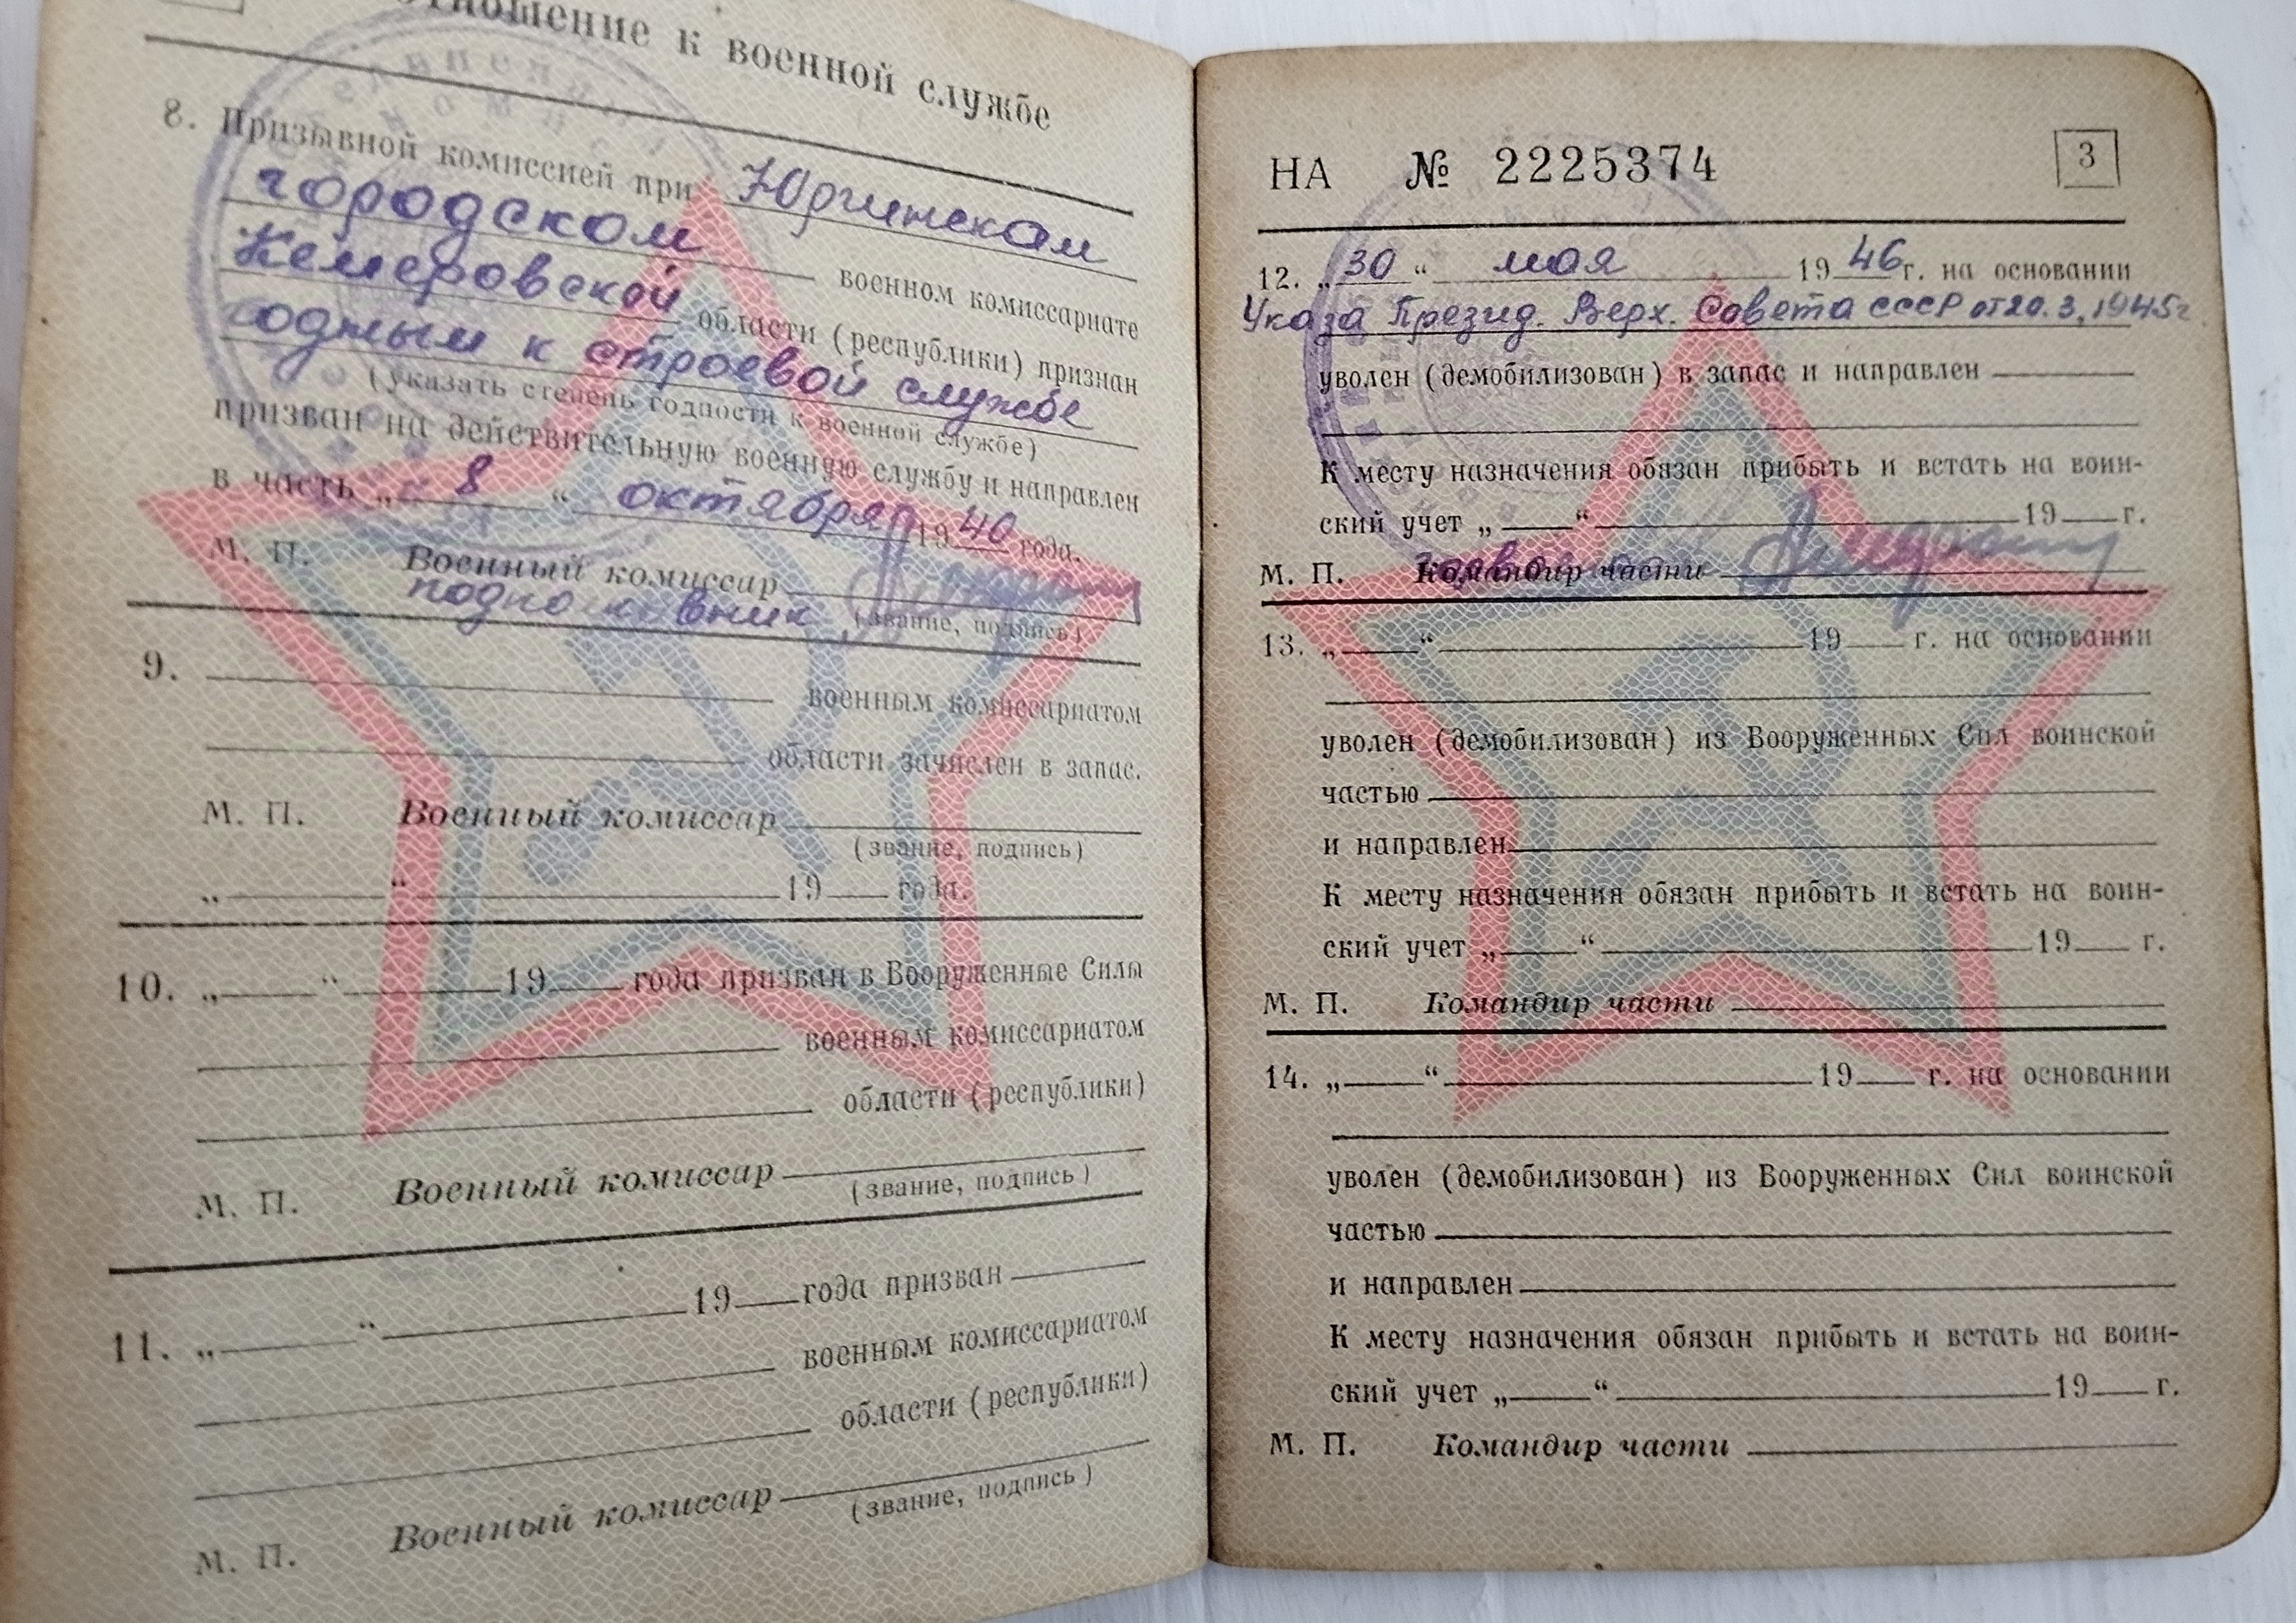 отношение к военной службе
8. Призывной комиссией при Юргинском
городском военном комиссариате
Кемеровской области (республики) признан
годным к строевой службе
(указать степень годности к военной службе)
призван на действительную военную службу и направлен
в часть „ 8 “ октября 1940 года.
М. П. Военный комиссар
подполковник (звание, подпись)
9.
военным комиссариатом
области зачислен в запас.
М. П. Военный комиссар
(звание, подпись)
„ “ 19 года.
10. „ “ 19 года призван в Вооруженные Силы
военным комиссариатом
области (республики)
М. П. Военный комиссар
(звание, подпись)
11. „ “ 19 года призван
военным комиссариатом
области (республики)
М. П. Военный комиссар
(звание, подпись)
НА № 2225374 3
12. „30“ мая 1946 г. на основании
Указа Презид. Верх. Совета СССР от 20.3.1945г
уволен (демобилизован) в запас и направлен
К месту назначения обязан прибыть и встать на воин-
ский учет „ “ 19 г.
М. П. Командир части
13. „ “ 19 г. на основании
уволен (демобилизован) из Вооруженных Сил воинской
частью
и направлен
К месту назначения обязан прибыть и встать на воин-
ский учет „ “ 19 г.
М. П. Командир части
14. „ “ 19 г. на основании
уволен (демобилизован) из Вооруженных Сил воинской
частью
и направлен
К месту назначения обязан прибыть и встать на воин-
ский учет „ “ 19 г.
М. П. Командир части